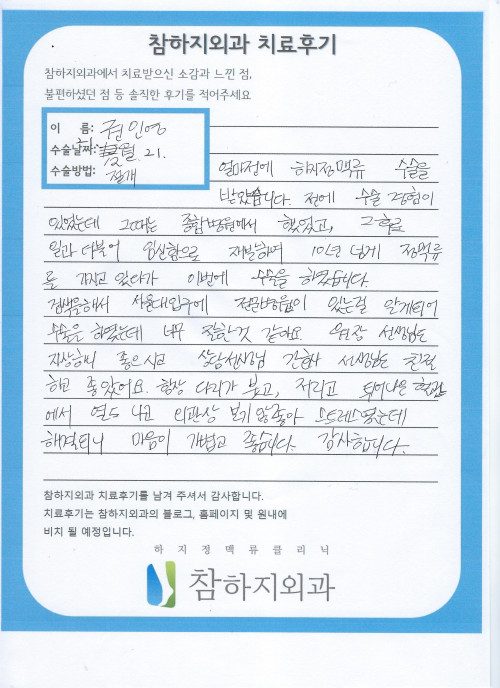 참하지외과 치료후기
참하지외과에서 치료받으신 소감과 느낀 점,
불편하셨던 점 등 솔직한 후기를 적어주세요
이 름: 권인영
수술날짜: 21.
수술방법: 절개
얼마전에 하지정맥류 수술을
받았습니다. 전에 수술 경험이
있었는데 그때는 종합병원에서 했었고, 그 후로
일과 더불어 임신함으로 재발하여 10년 넘게 정맥류
를 가지고 있다가 이번에 수술을 하였습니다.
검색을해서 서울대입구에 전문병원이 있는걸 알게되어
수술을 하였는데 너무 잘한것 같아요. 원장 선생님도
자상하니 좋으시고 상담선생님 간호사 선생님도 친절
하고 좋았어요. 항상 다리가 붓고, 저리고 튀어나온 혈관
에서 열도 나고 외관상 보기 않좋아 스트레스였는데
해결되니 마음이 개볍고 좋습니다. 감사합니다.
참하지외과 치료후기를 남겨 주셔서 감사합니다.
치료후기는 참하지외과의 블로그, 홈페이지 및 원내에
비치 될 예정입니다.
하지정맥류클리닉
참하지외과